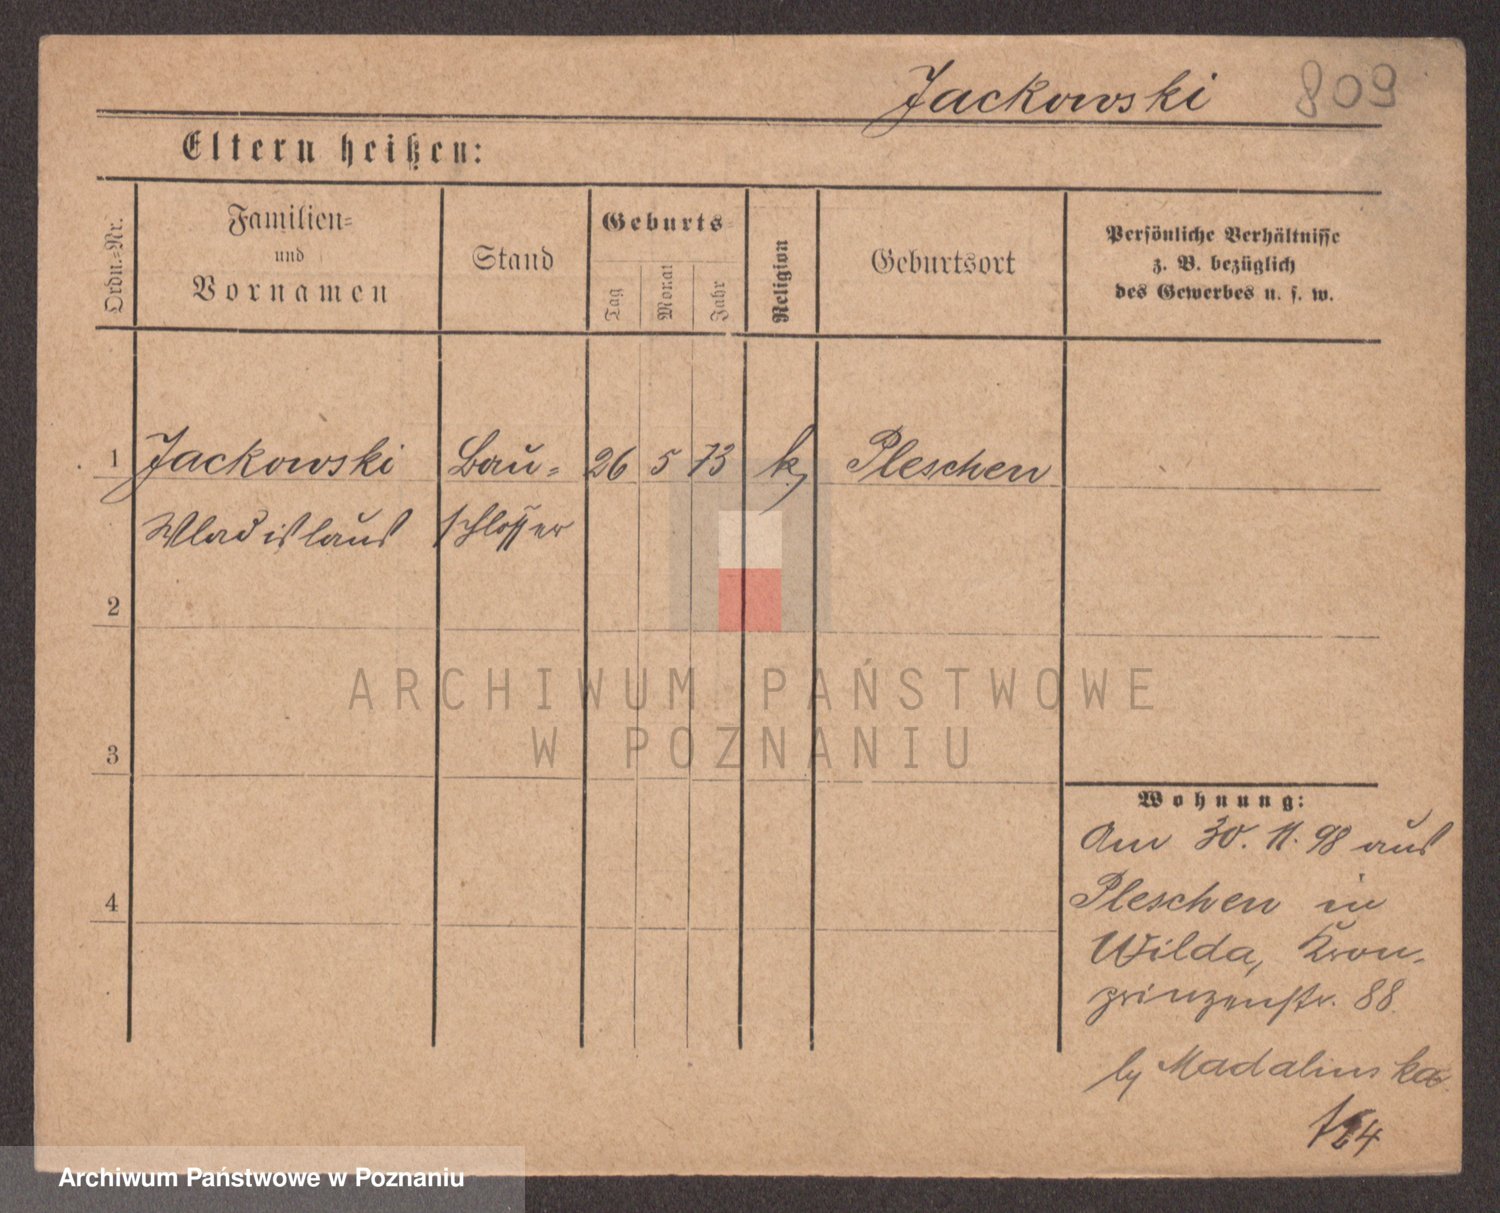 Jackowski 809
Eltern heißen:
Ordn.-Nr.
Familien-
und
Vornamen
Stand
Geburts-
Tag
Monat
Jahr
Religion
Geburtsort
Persönliche Verhältnisse
z. B. bezüglich
des Gewerbes u. s. w.
1 Jackowski Bau- 26 5 73 k Pleschen
Wladislaus schlosser
2
3
4
Wohnung:
Am 30. 11. 98 aus
Pleschen in
Wilda, Kron-
prinzenstr. 88.
by Madalinska
ARCHIWUM PAŃSTWOWE
W POZNANIU
Archiwum Państwowe w Poznaniu